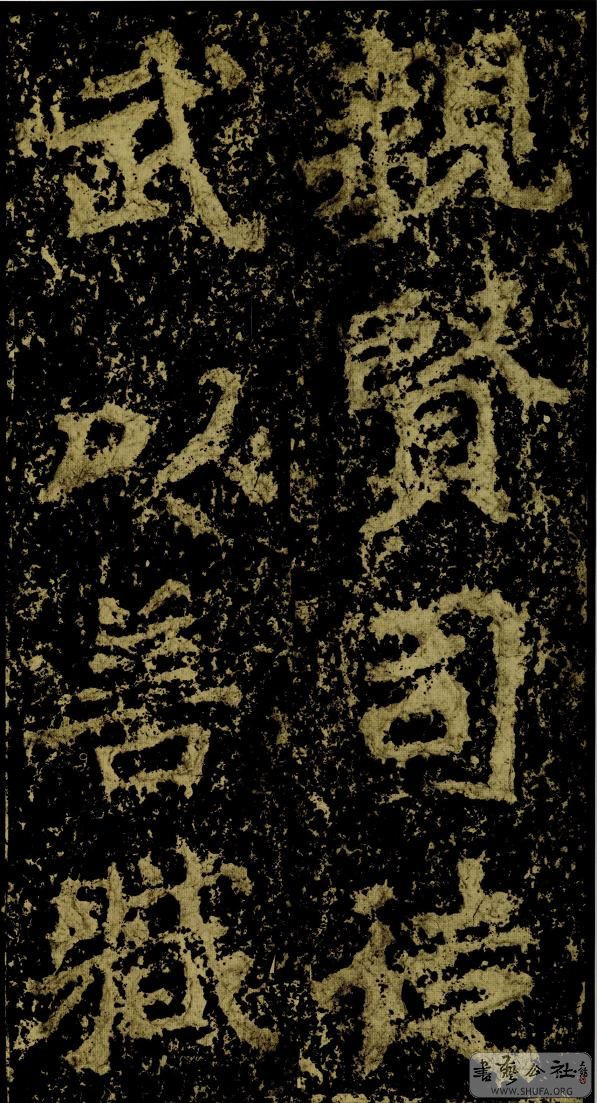 親賢司徒
武以善軄
書藝公社
WWW.SHUFA.ORG